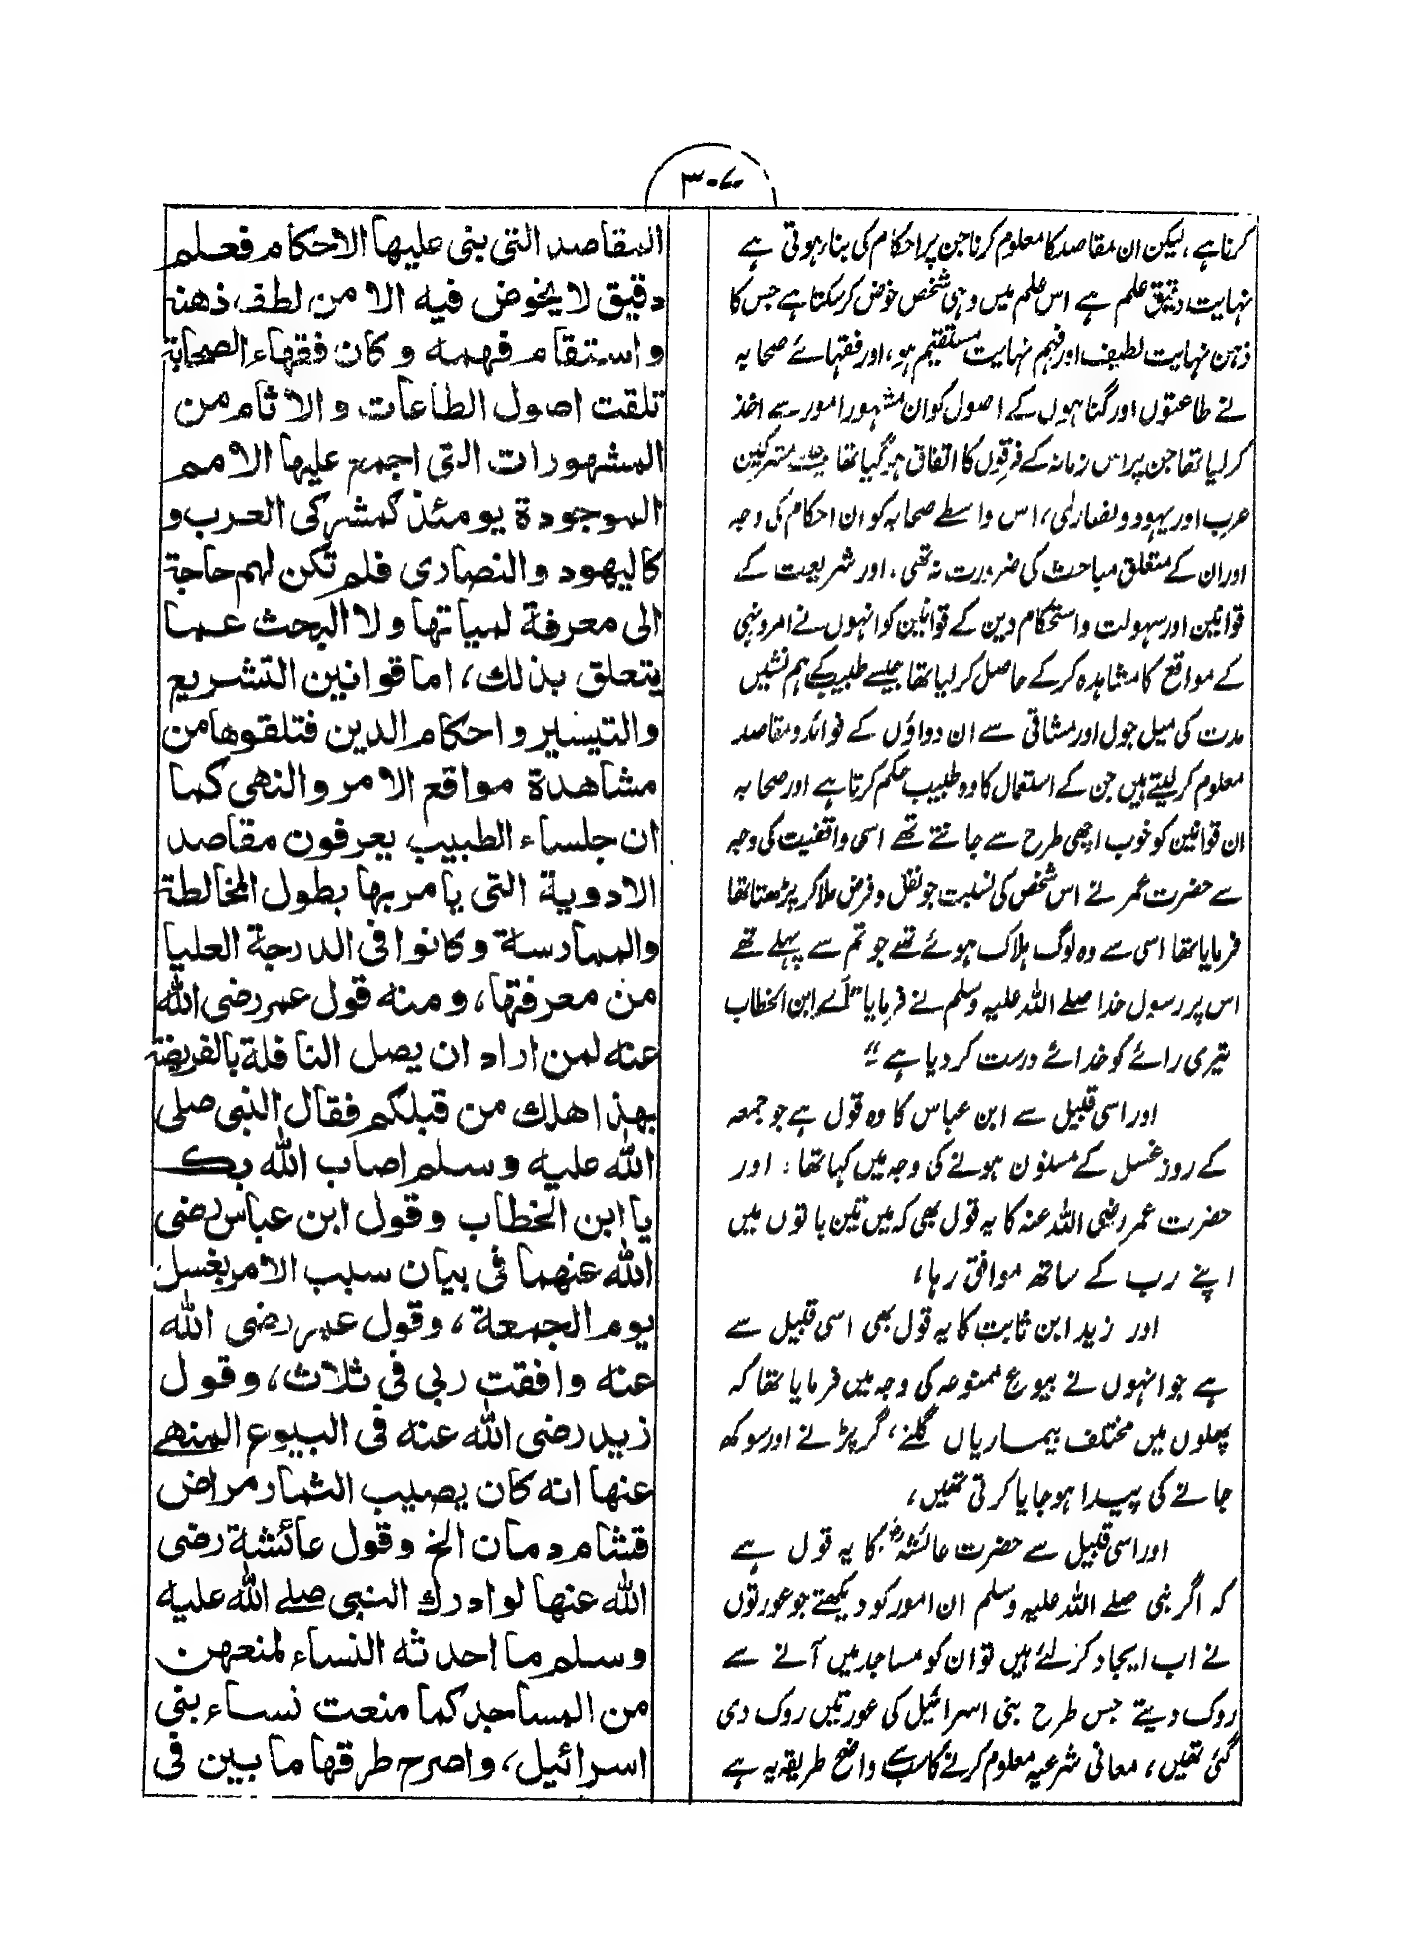 ۳۰۷
کرنا ہے، لیکن ان مقاصد کا معلوم کرنا جن پر احکام کی بنا ہوتی ہے
نہایت دقیق علم ہے اس علم میں وہی شخص خوض کر سکتا ہے جس کا
ذہن نہایت لطیف اور فہم نہایت مستقیم ہو، اور فقہائے صحابہ
نے طاعتوں اور گناہوں کے اصول کو ان مشہور امور سے اخذ
کر لیا تھا جن پر اس زمانہ کے فرقوں کا اتفاق ہو گیا تھا جیسے مشرکین
عرب اور یہود و نصاریٰ، اس واسطے صحابہ کو ان احکام کی وجہ
اور ان کے متعلق مباحث کی ضرورت نہ تھی، اور شریعت کے
قوانین اور سہولت و استحکام دین کے قوانین کو انہوں نے امر و نہی
کے مواقع کا مشاہدہ کر کے حاصل کر لیا تھا جیسے طبیب کے ہم نشیں
مدت کی میل جول اور مشاقی سے ان دواؤں کے فوائد و مقاصد
معلوم کر لیتے ہیں جن کے استعمال کا وہ طبیب حکم کرتا ہے اور صحابہ
ان قوانین کو خوب اچھی طرح سے جانتے تھے اسی واقفیت کی وجہ
سے حضرت عمر نے اس شخص کی نسبت جو نفل و فرض ملا کر پڑھتا تھا
فرمایا تھا اسی سے وہ لوگ ہلاک ہوئے تھے جو تم سے پہلے تھے
اس پر رسول خدا صلے اللہ علیہ وسلم نے فرمایا "اے ابن الخطاب
تیری رائے کو خدا نے درست کر دیا ہے"
اور اسی قبیل سے ابن عباس کا وہ قول ہے جو جمعہ
کے روز غسل کے مسنون ہونے کی وجہ میں کہا تھا، اور
حضرت عمر رضی اللہ عنہ کا یہ قول بھی کہ میں تین باتوں میں
اپنے رب کے ساتھ موافق رہا،
اور زید ابن ثابت کا یہ قول بھی اسی قبیل سے
ہے جو انہوں نے بیوع ممنوعہ کی وجہ میں فرمایا تھا کہ
پھلوں میں مختلف بیماریاں گلنے، گر پڑنے اور سوکھ
جانے کی پیدا ہو جایا کرتی تھیں،
اور اسی قبیل سے حضرت عائشہؓ کا یہ قول ہے
کہ اگر نبی صلے اللہ علیہ وسلم ان امور کو دیکھتے جو عورتوں
نے اب ایجاد کر لئے ہیں تو ان کو مساجد میں آنے سے
روک دیتے جس طرح بنی اسرائیل کی عورتیں روک دی
گئی تھیں، معانی شرعیہ معلوم کرنے کا سب سے واضح طریقہ یہ ہے
المقاصد التى بنى عليها الاحكام فعلم
دقيق لا يخوض فيه الا من لطف ذهنه
واستقام فهمه وكان فقهاء الصحابة
تلقت اصول الطاعات والاثام من
المشهورات التى اجمع عليها الامم
الموجودة يومئذ كمشركى العرب و
كاليهود والنصارى فلم تكن لهم حاجة
الى معرفة لمياتها ولا البحث عما
يتعلق بذلك، اما قوانين التشريع
والتيسير واحكام الدين فتلقوها من
مشاهدة مواقع الامر والنهى كما
ان جلساء الطبيب يعرفون مقاصد
الادوية التى يامر بها بطول المخالطة
والممارسة وكانوا فى الدرجة العليا
من معرفتها، ومنه قول عمر رضى الله
عنه لمن اراد ان يصل النافلة بالفريضة
بهذا هلك من قبلكم فقال النبى صلى
الله عليه وسلم اصاب الله بك
يا ابن الخطاب وقول ابن عباس رضى
الله عنهما فى بيان سبب الامر بغسل
يوم الجمعة، وقول عمر رضى الله
عنه وافقت ربى فى ثلاث، وقول
زيد رضى الله عنه فى البيوع المنهے
عنها انه كان يصيب الثمار مراض
قشام دمان الخ وقول عائشة رضى
الله عنها لو ادرك النبى صلے الله عليه
وسلم ما احدثه النساء لمنعهن
من المساجد كما منعت نساء بنى
اسرائيل، واصرح طرقها ما بين فى